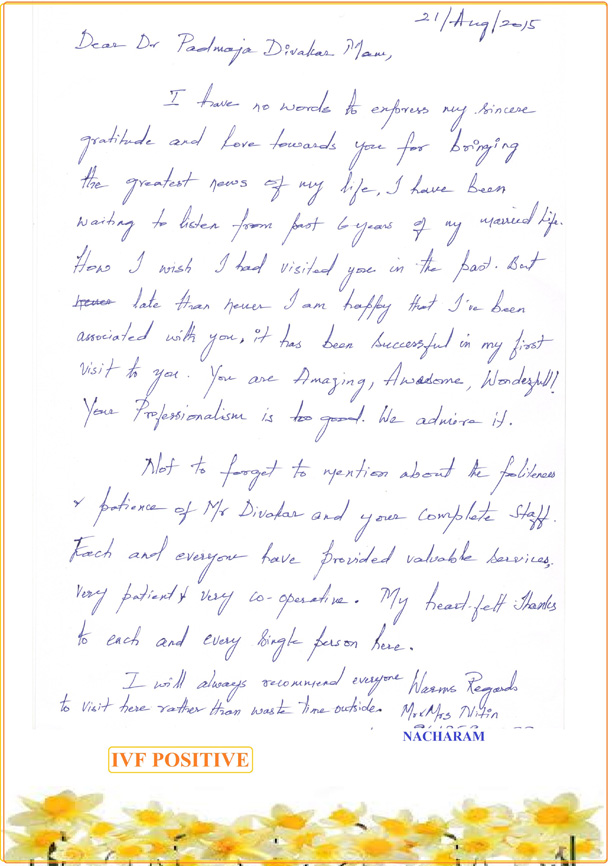 21/Aug/2015
Dear Dr Padmaja Divakar Mam,
I have no words to express my sincere
gratitude and love towards you for bringing
the greatest news of my life, I have been
waiting to listen from past 6 years of my married life.
How I wish I had visited you in the past. But
late than never I am happy that I've been
associated with you, it has been successful in my first
visit to you. You are Amazing, Awesome, Wonderful!
Your Professionalism is too good. We admire it.
Not to forget to mention about the politeness
& patience of Mr Divakar and your complete staff.
Each and everyone have provided valuable services,
very patient & very co-operative. My heart-felt Thanks
to each and every single person here.
I will always recommend everyone
to visit here rather than waste time outside.
Warms Regards
Mr & Mrs Nitin
NACHARAM
IVF POSITIVE